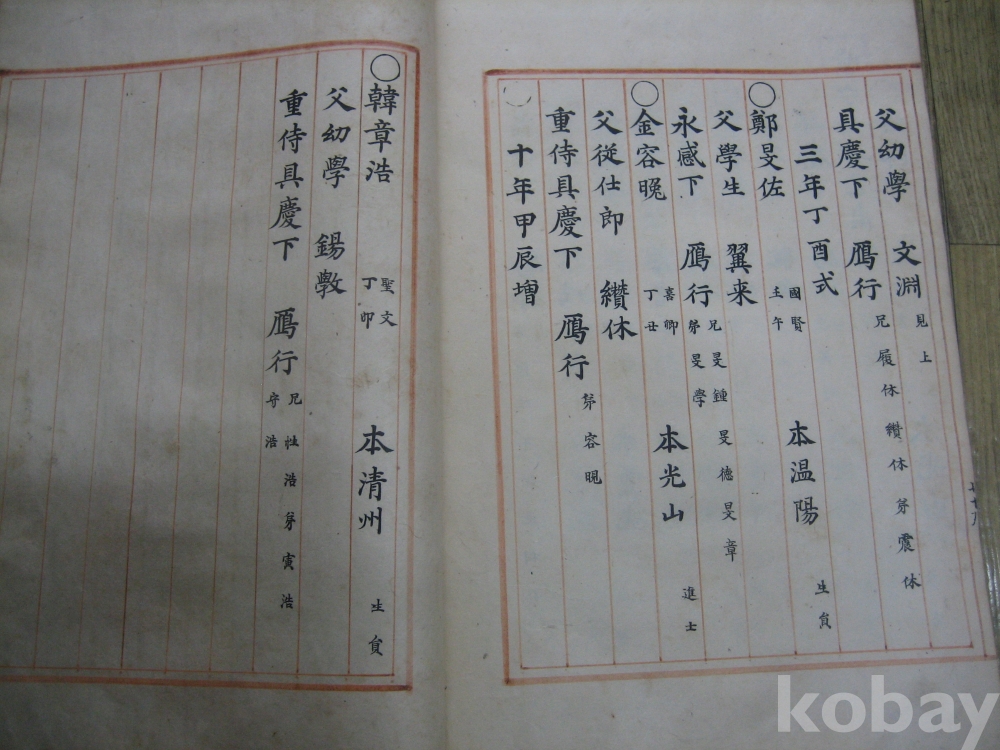 父幼學 文淵 見上
具慶下 鴈行 兄履休 纘休 弟震休
三年丁酉式
○鄭旻佐 國賢 壬午 本溫陽 生員
父學生 翼来
永感下 鴈行 兄旻鍾 旻德 旻章 弟旻學
○金容晚 喜卿 丁丑 本光山 進士
父從仕郎 纘休
重侍具慶下 鴈行 弟容晛
十年甲辰增
○韓章浩 聖文 丁卯 本清州 生員
父幼學 錫斆
重侍具慶下 鴈行 兄性浩 弟寅浩 守浩
kobay